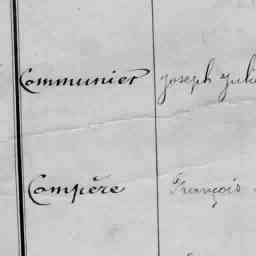 Communier Joseph
Compère François